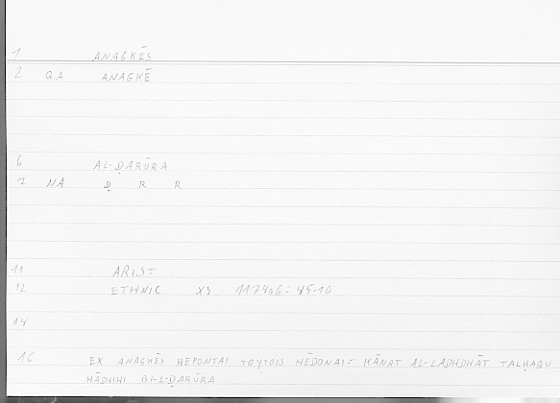 1 ANAGKĒS
2 QA ANAGKĒ
6 AL-ḌARŪRA
7 NA Ḍ R R
11 ARIST
12 ETHNIC X3 1174a6 = 45-16
14
16 EX ANAGKĒS HEPONTAI TOYTOIS HĒDONAI = KĀNAT AL-LADHDHĀT TALḤAQU
HĀDHIHI BI-L-ḌARŪRA